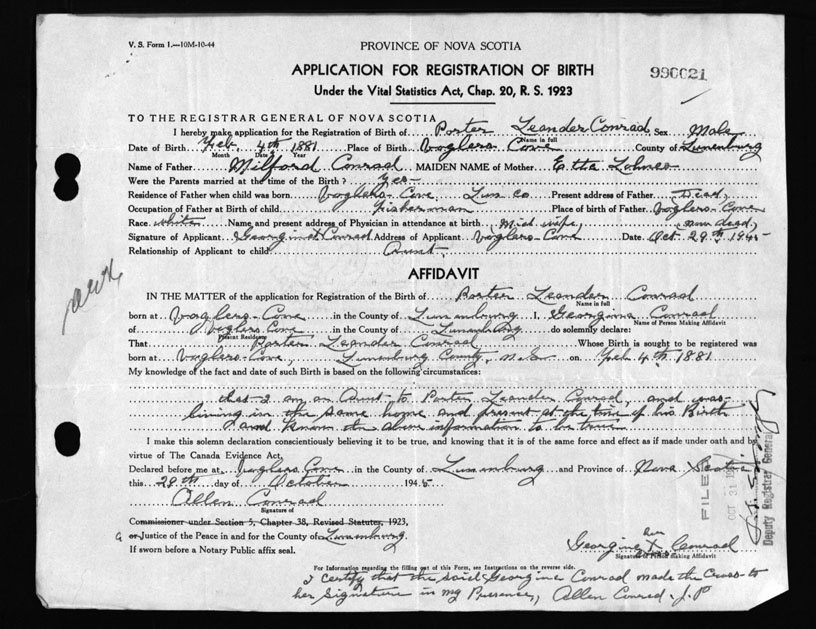 V. S. Form 1.—10M-10-44
PROVINCE OF NOVA SCOTIA
APPLICATION FOR REGISTRATION OF BIRTH
990021
Under the Vital Statistics Act, Chap. 20, R. S. 1923
TO THE REGISTRAR GENERAL OF NOVA SCOTIA
I hereby make application for the Registration of Birth of Porter Leander Conrad Sex Male
Name in full
Date of Birth Feb. 4th 1881 Place of Birth Voglers Cove County of Lunenburg
Month Date Year
Name of Father Milford Conrad MAIDEN NAME of Mother Etta Lohnes
Were the Parents married at the time of the Birth? Yes
Residence of Father when child was born Voglers-Cove Lun co Present address of Father Died
Occupation of Father at Birth of child Fisherman Place of birth of Father Voglers-Cove
Race white Name and present address of Physician in attendance at birth Mid wife, now dead,
Signature of Applicant Georgina Conrad Address of Applicant Voglers-Cove Date Oct 29th 1945
Relationship of Applicant to child Aunt.
AFFIDAVIT
IN THE MATTER of the application for Registration of the Birth of Porter Leander Conrad
Name in full
born at Voglers-Cove in the County of Lunenburg I, Georgina Conrad
Name of Person Making Affidavit
of Voglers Cove in the County of Lunenburg do solemnly declare:
Present Residence
That Porter Leander Conrad Whose Birth is sought to be registered was
born at Voglers-Cove, Lunenburg County, N.S. on Feb 4th 1881
My knowledge of the fact and date of such Birth is based on the following circumstances:
that I am an Aunt to Porter Leander Conrad, and was
living in the same home and present at the time of his Birth
and know the above information to be true
I make this solemn declaration conscientiously believing it to be true, and knowing that it is of the same force and effect as if made under oath and by
virtue of The Canada Evidence Act.
Declared before me at Voglers Cove in the County of Lunenburg and Province of Nova Scotia
this 29th day of October 1945
Allen Conrad
Signature of
Commissioner under Section 5, Chapter 38, Revised Statutes, 1923,
a or Justice of the Peace in and for the County of Lunenburg.
If sworn before a Notary Public affix seal.
FILED
OCT 31
Deputy Registrar General
her
Georgina X Conrad
Signature of Person Making Affidavit
For Information regarding the filling out of this Form, see Instructions on the reverse side.
I certify that the said Georgina Conrad made the Cross to
her Signature in my Presence, Allen Conrad. J.P